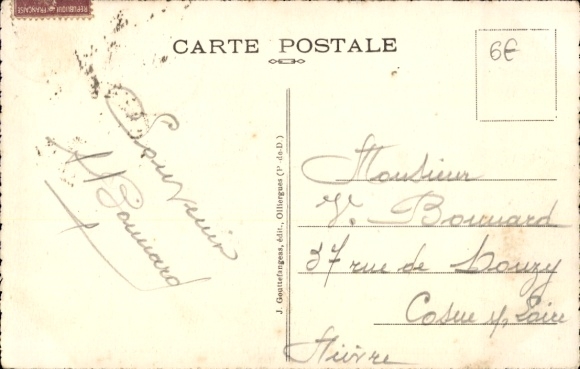 REPUBLIQUE FRANÇAISE
CARTE POSTALE
6€
Souvenir
Bonnard
J. Gouttefangeas, édit., Olliergues (P.-de-D.)
Monsieur
V. Bonnard
37 rue de Donzy
Cosne s/ Loire
Nièvre